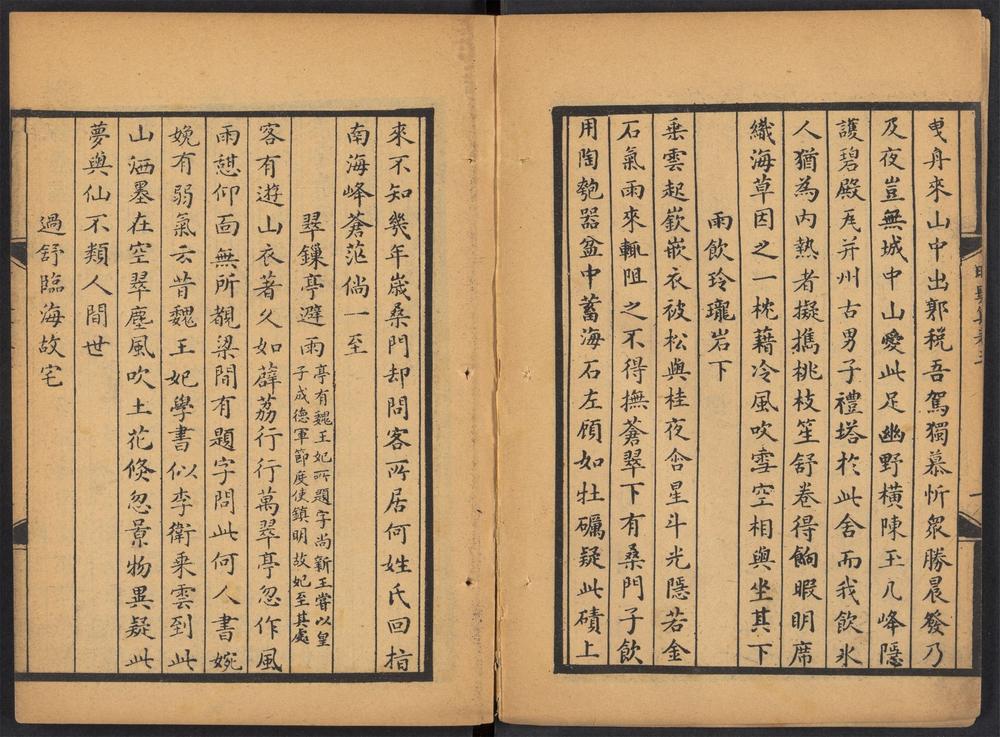 曳舟來山中出郭稅吾駕獨慕忻眾勝晨發乃
及夜豈無城中山愛此足幽野橫陳玉几峰隱
護碧殿瓦并州古男子禮塔於此舍而我飲氷
人猶為內熱者擬攜桃枝笙舒卷得餉暇明席
織海草因之一枕藉冷風吹雪空相與坐其下
雨飲玲瓏岩下
乗雲起嶔嵌衣被松與桂夜含星斗光隱若金
石氣雨來輒阻之不得撫蒼翠下有桑門子飲
用陶匏器盆中蓄海石左顧如牡礪疑此磧上
來不知幾年歲桑門却問客所居何姓氏回指
南海峰蒼茫倘一至
翠鏁亭避雨亭有魏王妃所題字尚新王嘗以皇
子成德軍節度使鎮明故妃至其處
客有遊山衣著久如薜荔行行萬翠亭忽作風
雨憇仰面無所覩梁間有題字問此何人書婉
娩有弱氣云昔魏王妃學書似李衛乘雲到此
山洒墨在空翠塵風吹土花倐忽景物異疑此
夢與仙不類人間世
過舒臨海故宅